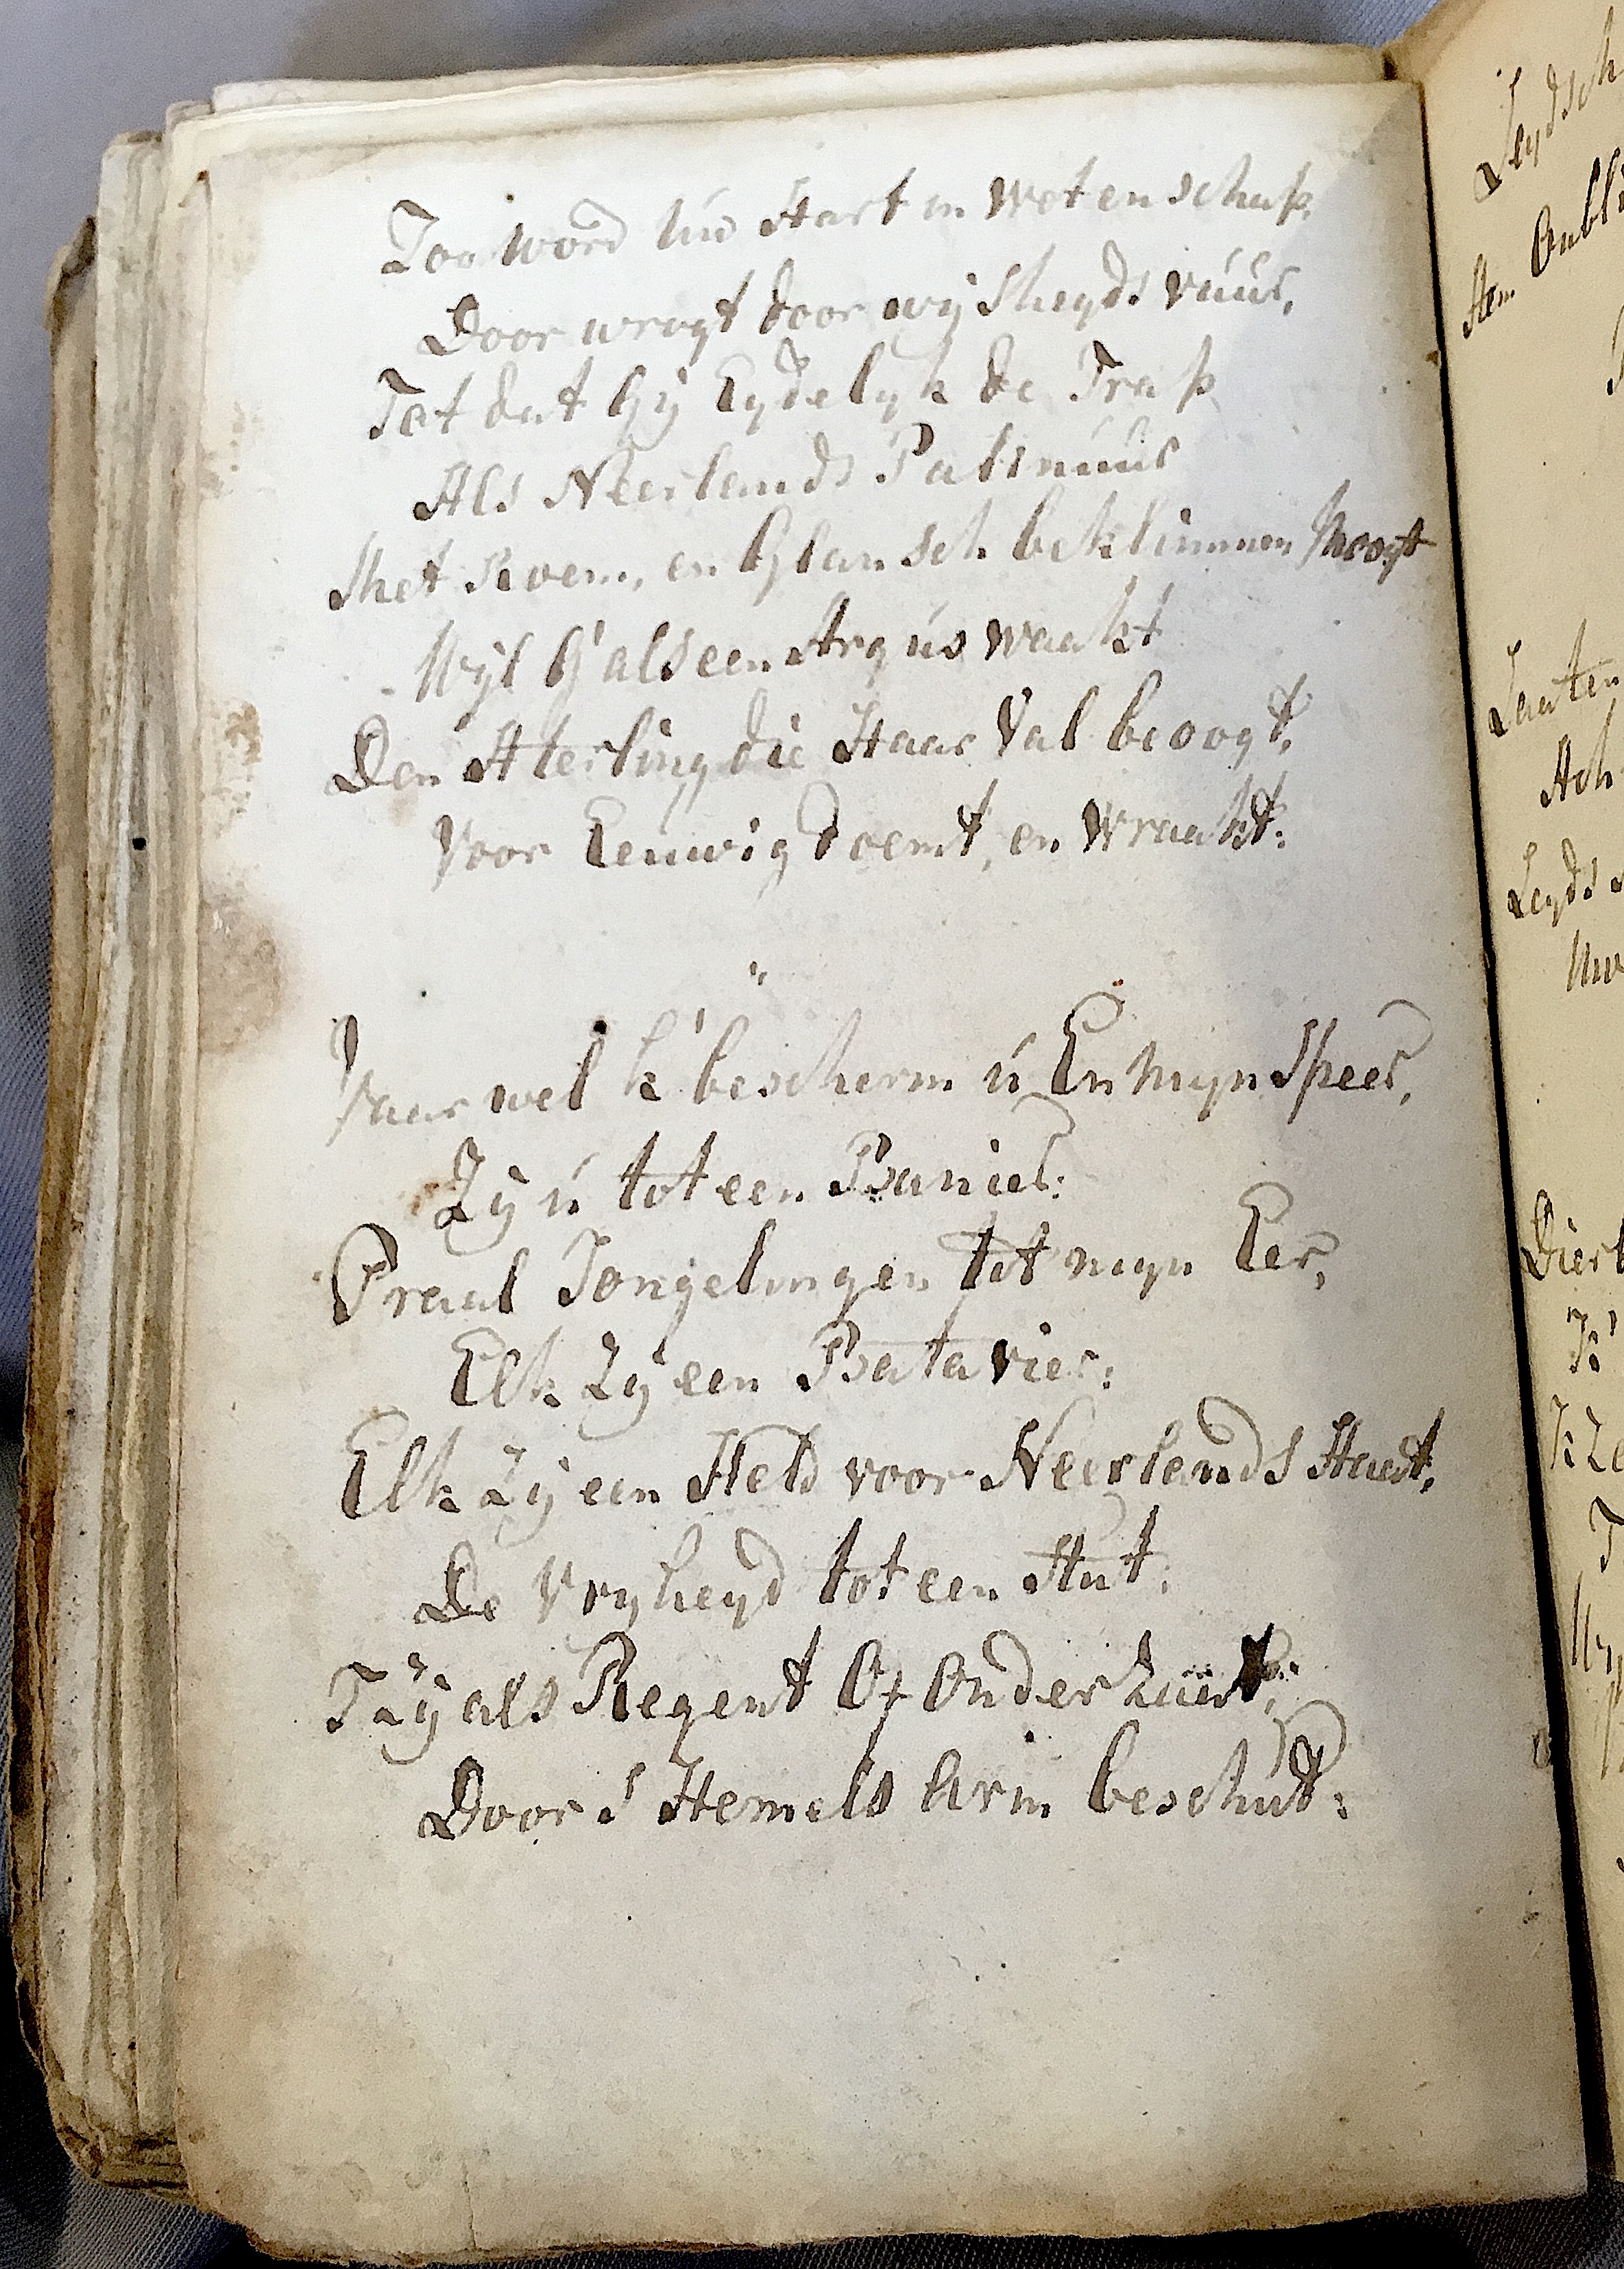 Zoo word úw Hart in Wetenschap,
Door wrogt door wysheyds vuur,
Tot dat Gÿ Eyndelyk de Trap
Als Neerlands Palinuur
Met Roem, en Glansch beklimmen moogt
Wyl G' als een Argus waakt
Den Aterling die Haar Val beoogt,
Voor Eeuwig doemt, en Wraakt:
Vaar wel k' bescherm ú En myn Speer,
Zÿ ú tot een Banier:
Praal Jongelingen tot myn Eer,
Elk Zÿ een Batavier:
Elk Zÿ een Held voor Neerlands Staat,
De Vryheyd tot een Stut:
T Zÿ als Regent Of Onderzaat,
Door S Hemels Arm beschut:
Leydsch
Hem
Leyds